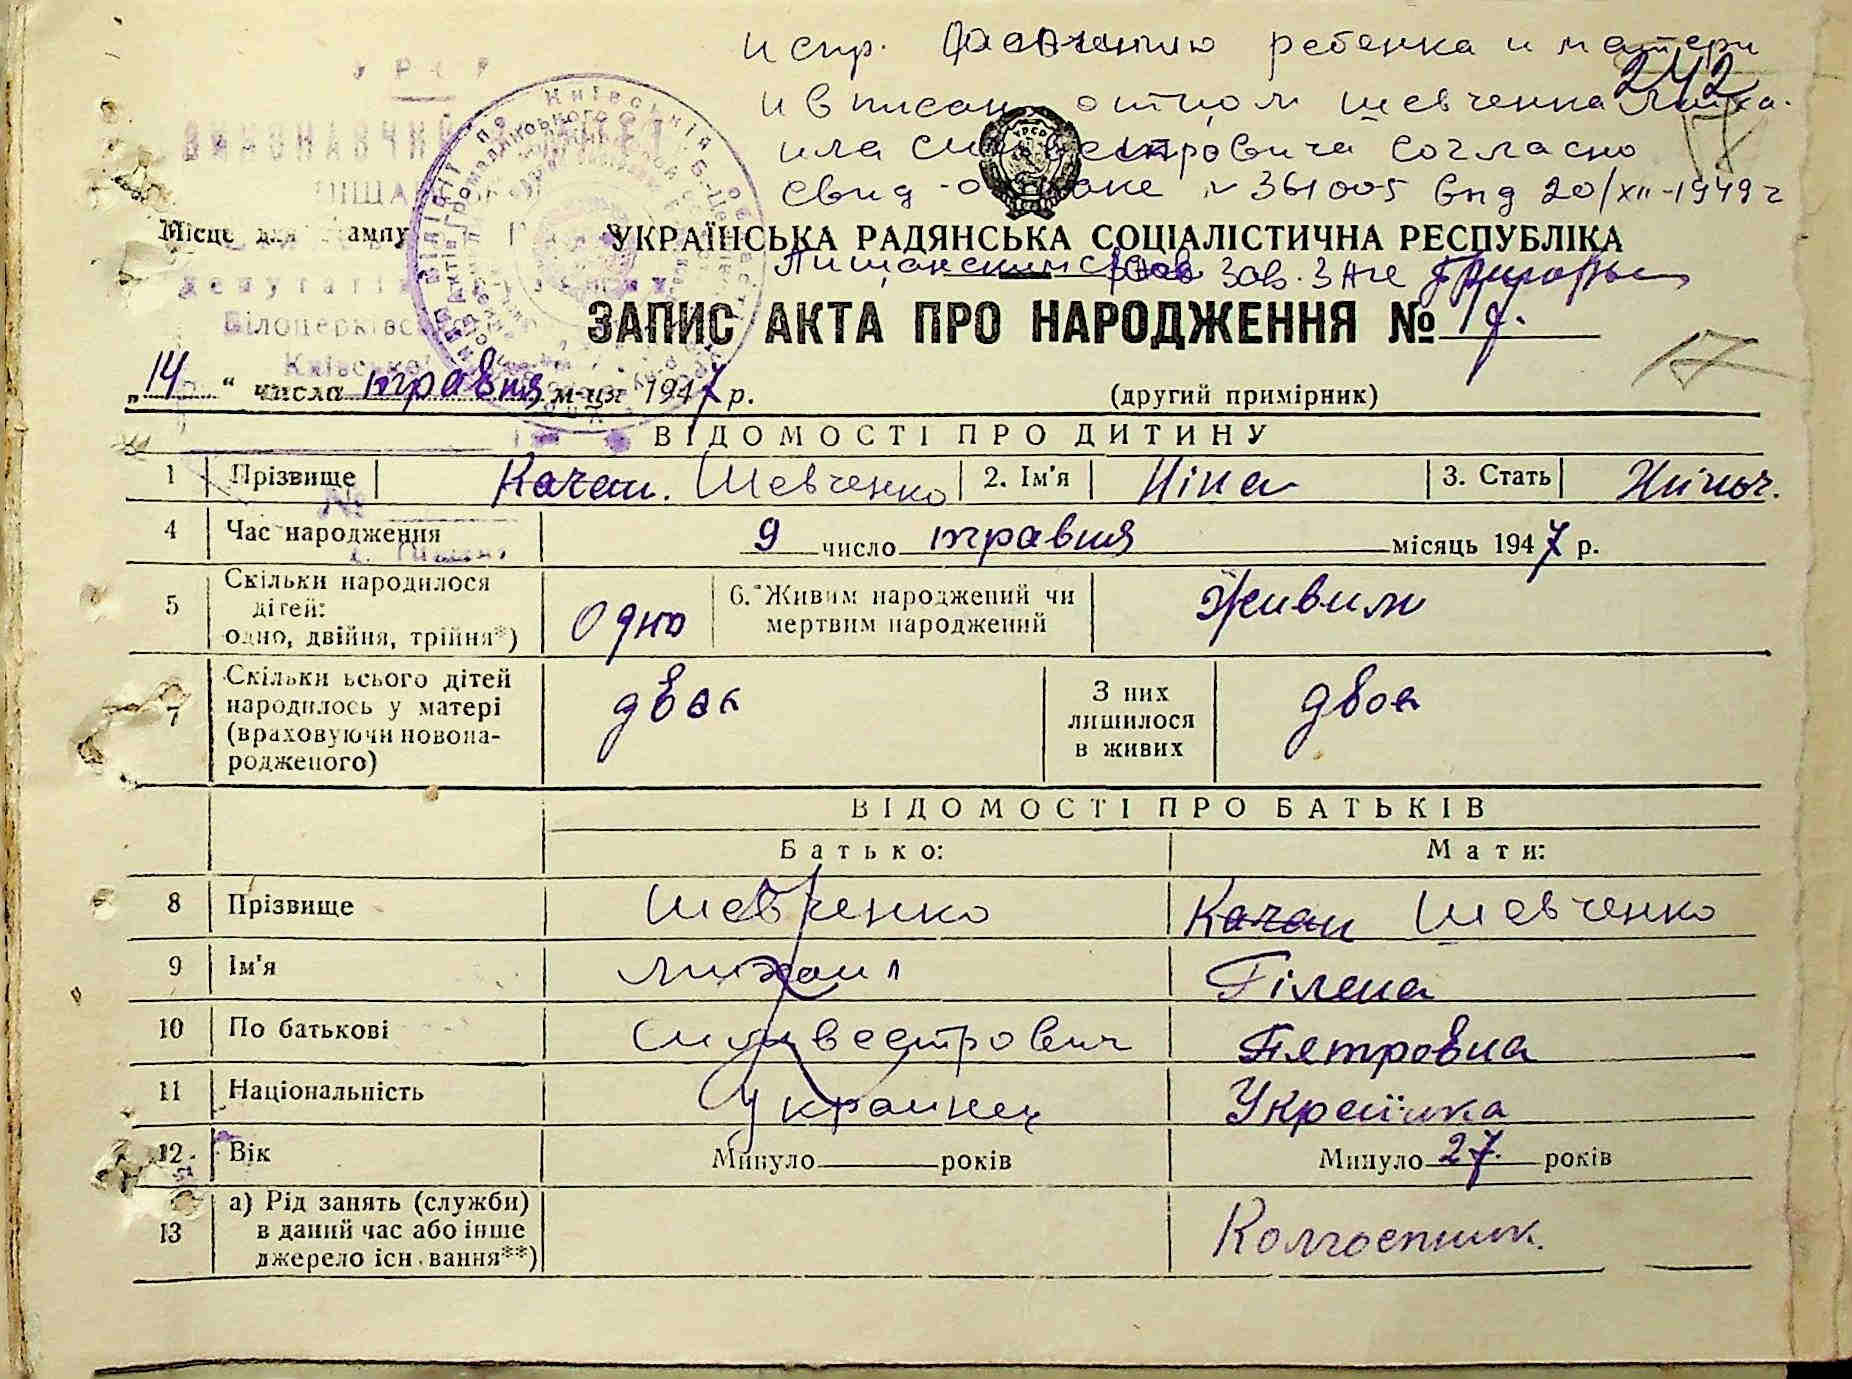 испр. фамилию ребенка и матери
242
и вписан отцом Шевченка Миха-
ила Сильвестровича согласно
17
свид о браке № 361005 выд 20/XII-1949 г
УРСР
ВИКОНАВЧИЙ
Місце для штампу
УКРАЇНСЬКА РАДЯНСЬКА СОЦІАЛІСТИЧНА РЕСПУБЛІКА
Зав. Загс
депутатів трудящих
Білоцерківсь
Київської
ЗАПИС АКТА ПРО НАРОДЖЕННЯ № 17.
17
„14“ числа травня м-ця 1947 р.
(другий примірник)
ВІДОМОСТІ ПРО ДИТИНУ
1 Прізвище Качан. Шевченко 2. Ім'я Ніна 3. Стать Жіноч.
4 Час народження 9 число травня місяць 1947 р.
5 Скільки народилося дітей: одно, двійня, трійня*) Одно 6. Живим народжений чи мертвим народжений Живим
7 Скільки всього дітей народилось у матері (враховуючи новонародженого) двоє З них лишилося в живих двоє
ВІДОМОСТІ ПРО БАТЬКІВ
Батько: Мати:
8 Прізвище Шевченко Качан Шевченко
9 Ім'я Михаил Гілена
10 По батькові Сильвестрович Петровна
11 Національність Украинец Українка
12 Вік Минуло років Минуло 27 років
13 а) Рід занять (служби) в даний час або інше джерело існування**) Колгоспник.